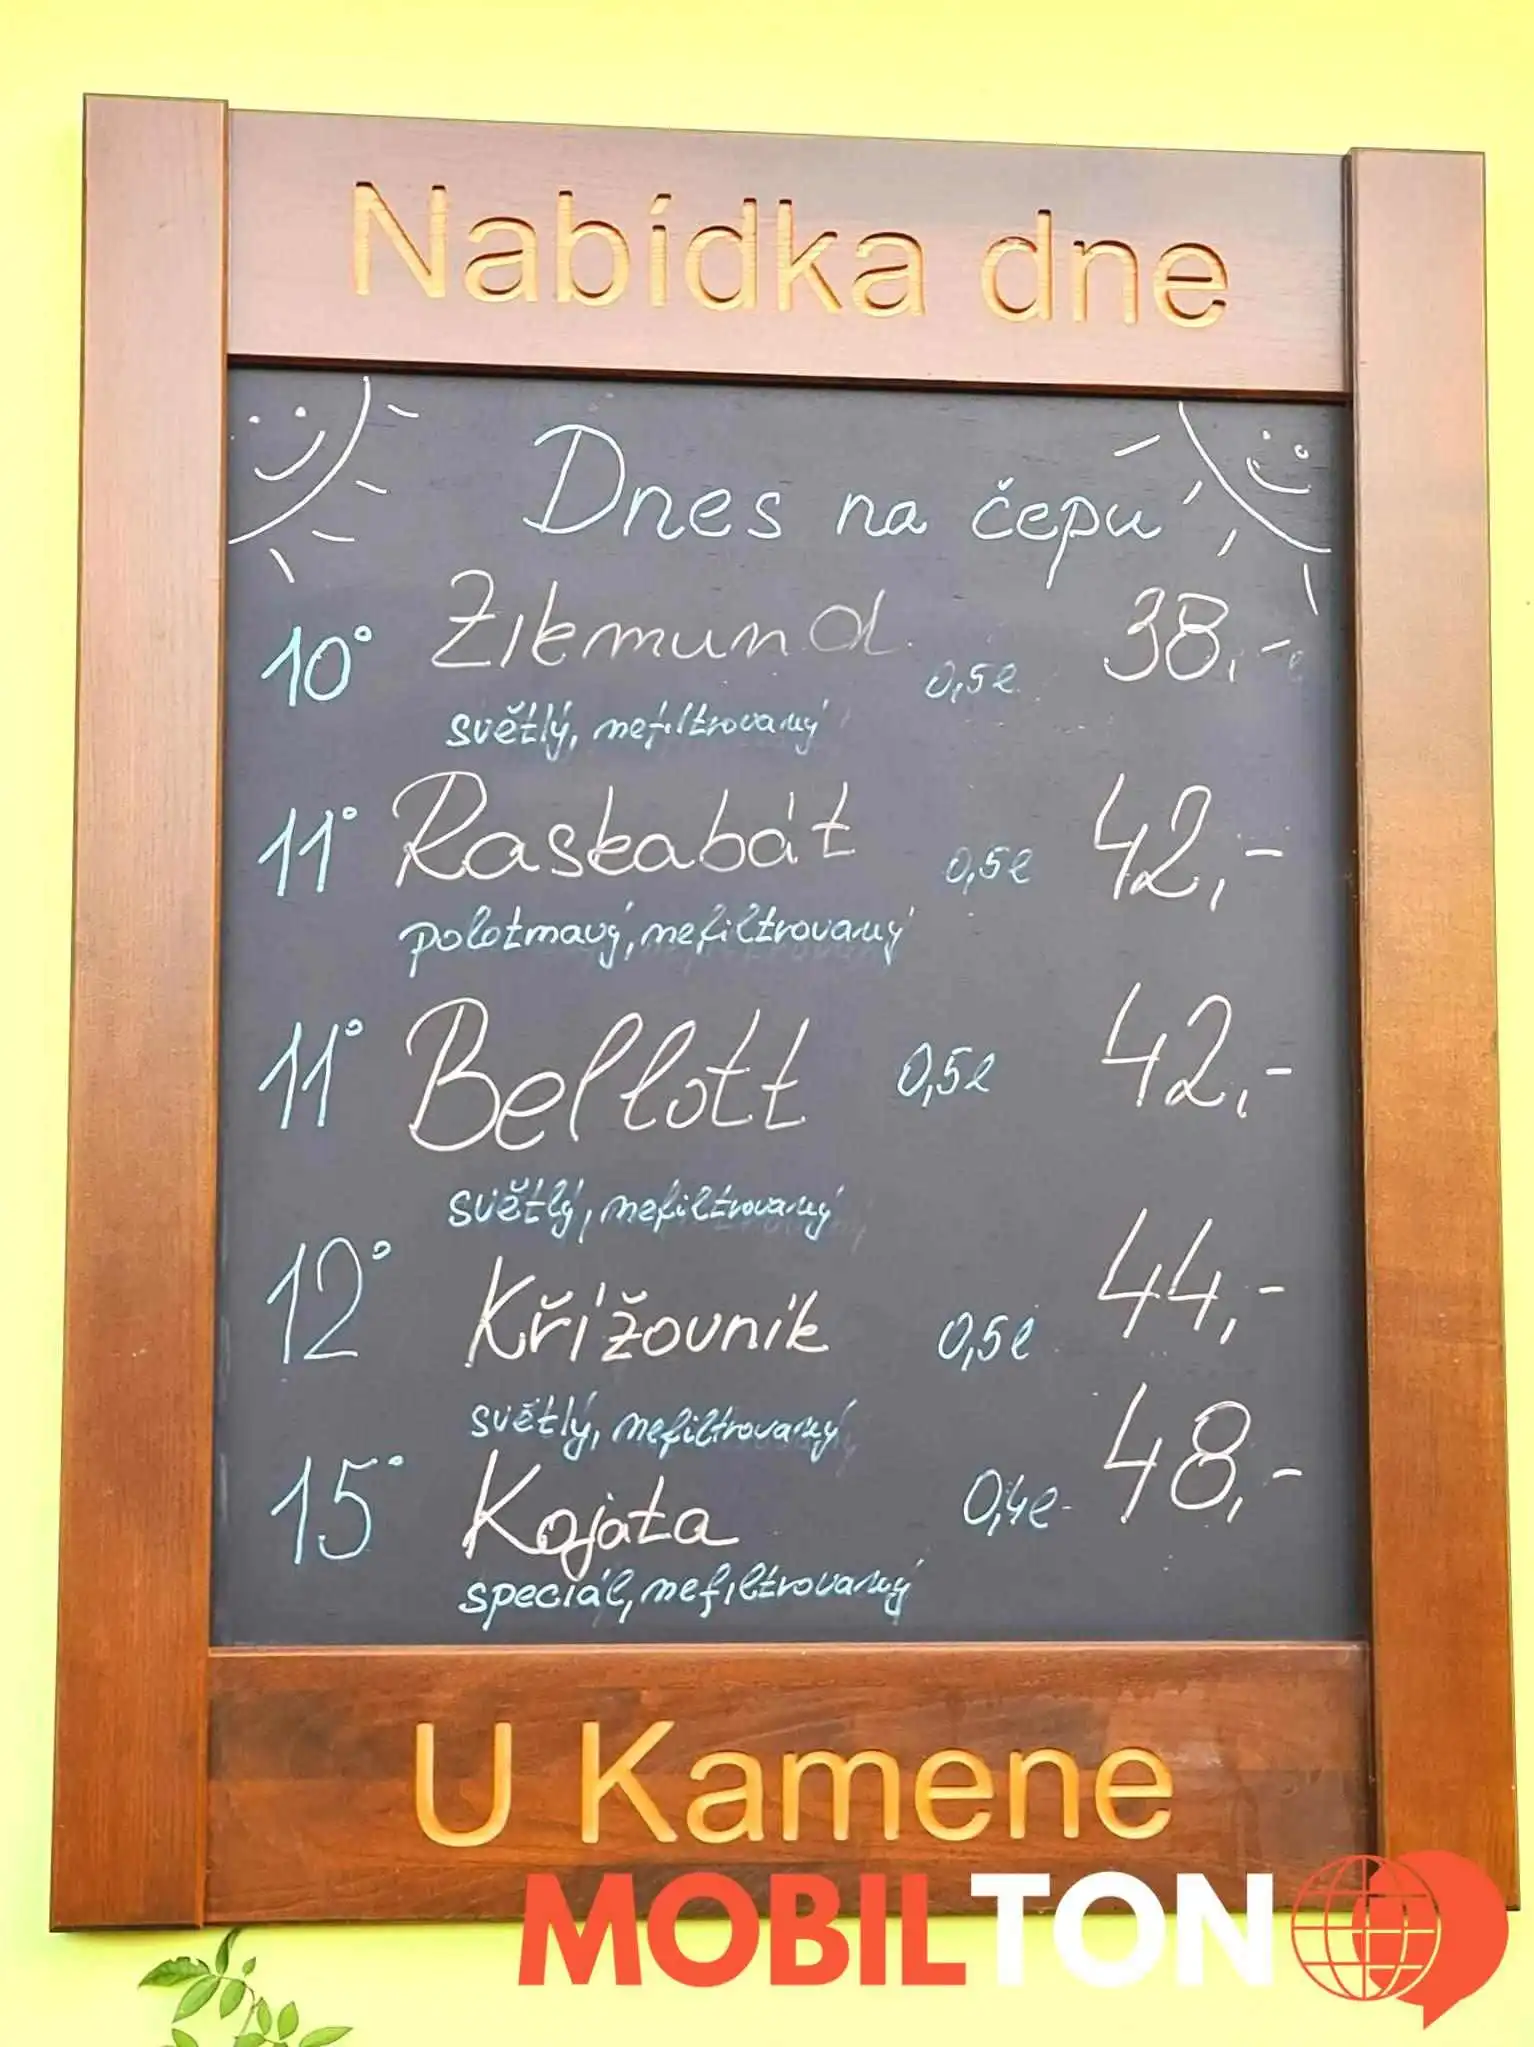 Nabídka dne
Dnes na čepu
10° Zikmund 0,5l 38,-
světlý, nefiltrovaný
11° Raskabát 0,5l 42,-
polotmavý, nefiltrovaný
11° Bellott 0,5l 42,-
světlý, nefiltrovaný
12° Křížovník 0,5l 44,-
světlý, nefiltrovaný
15° Kojata 0,4l 48,-
speciál, nefiltrovaný
U Kamene
MOBILTON